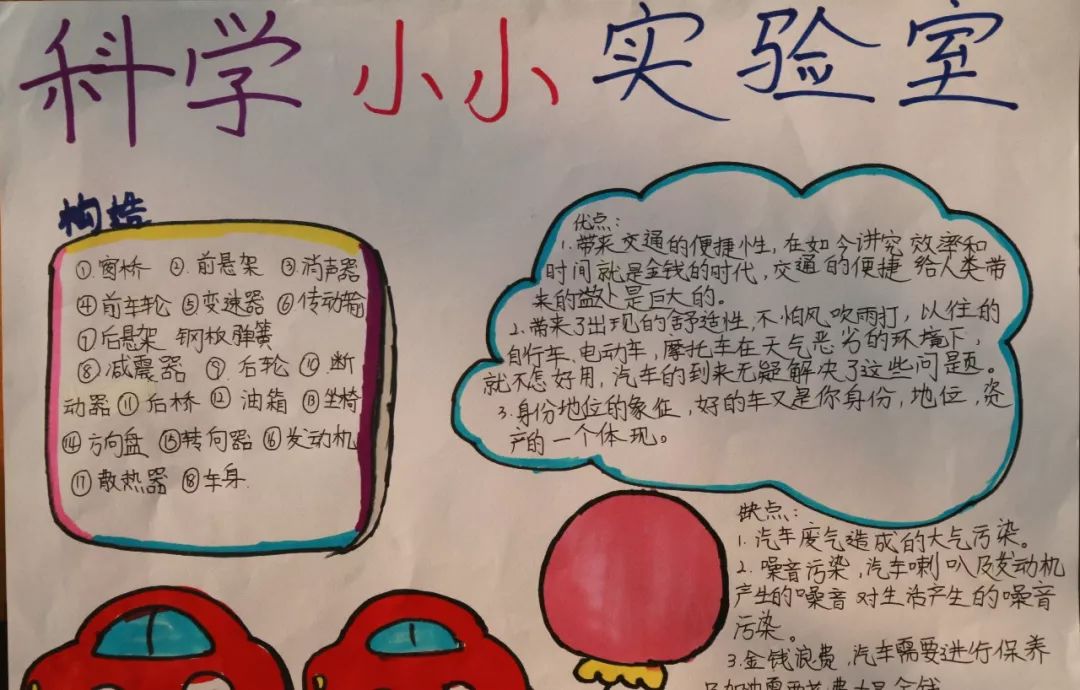 科学小小实验室
构造
①.窗桥 ②.前悬架 ③消声器
④前车轮 ⑤变速器 ⑥传动输
⑦后悬架 钢板弹簧
⑧减震器 ⑨.后轮 ⑩断
动器⑪后桥 ⑫油箱 ⑬坐椅
⑭方向盘 ⑮转向器 ⑯发动机
⑰散热器 ⑱车身.
优点:
1.带来交通的便捷性,在如今讲究效率和
时间就是金钱的时代,交通的便捷给人类带
来的益处是巨大的。
2.带来了出现的舒适性,不怕风吹雨打,以往的
自行车、电动车,摩托车在天气恶劣的环境下,
就不怎好用,汽车的到来无疑解决了这些问题。
3.身份地位的象征,好的车又是你身份,地位,资
产的一个体现。
缺点:
1.汽车废气造成的大气污染。
2.噪音污染,汽车喇叭及发动机
产生的噪音对生活产生的噪音
污染。
3.金钱浪费,汽车需要进行保养